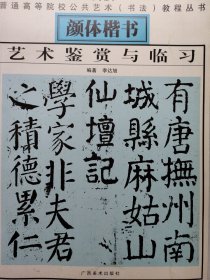 普通高等院校公共艺术（书法）教程丛书
颜体楷书
艺术鉴赏与临习
编著 李达旭
有唐撫州南
城縣麻姑山
仙壇記
學家非夫君
之積德累仁
广西美术出版社